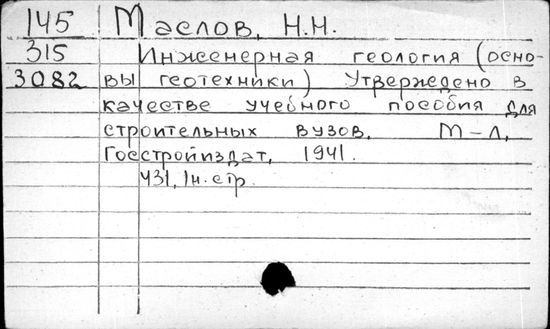 145 Маслов, Н.Н.
315 Инженерная геология (осно-
3082 вы геотехники) Утверждено в
качестве учебного пособия для
строительных вузов. М-Л,
Госстройиздат, 1941.
431, 1н. стр.